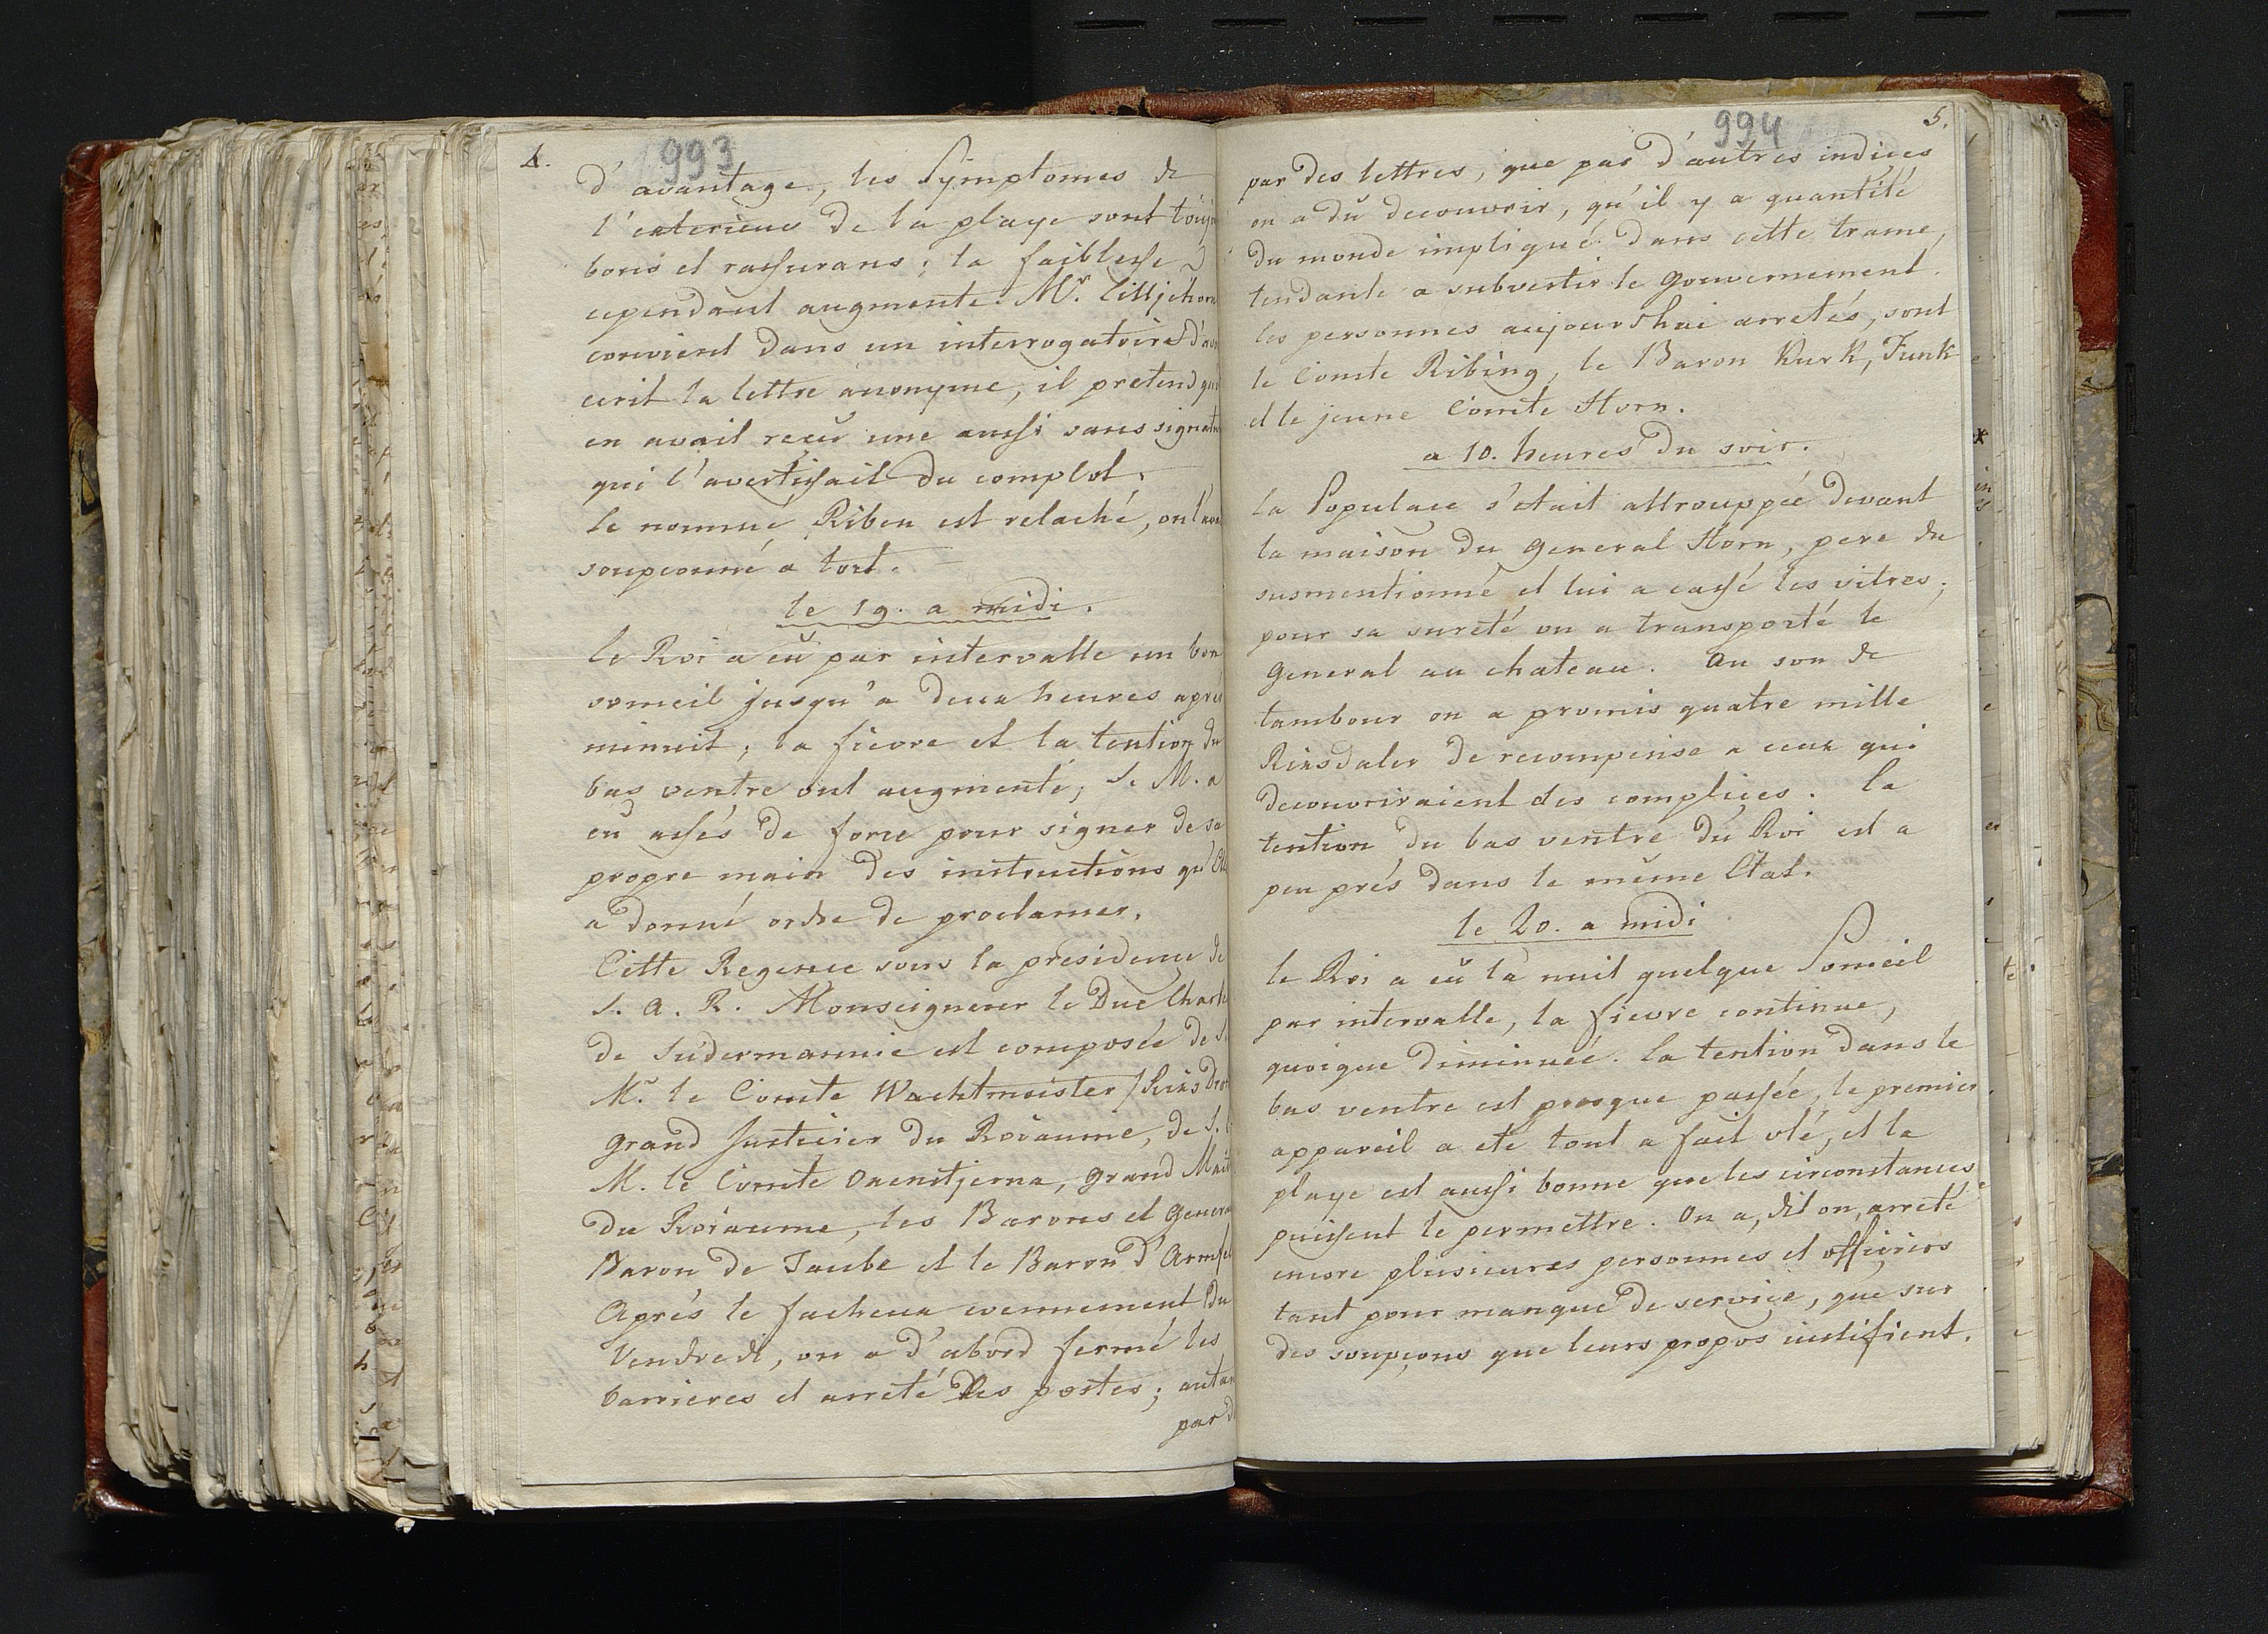 4.
993
d'avantage, les Symptomes de
l'exterieur de la playe sont touj
bons et rassurans; la faiblesse
cependant augmente. Mr. Lilljehorn
convient dans un interrogatoire d'avo
ecrit la lettre anonyme, il pretend qu
en avait reçu une aussi sans signatu
qui l'avertissait du complot.
le nommé Riben est relaché, on l'avo
soupçonné a tort.
le 19. a midi.
le Roi a eû par intervalle un bon
someil jusqu'a deux heures aprés
minuit; la fievre et la tention du
bas ventre ont augmenté, S. M. a
eu assés de force pour signer de sa
propre main des instructions qu'Ell
a donné ordre de proclamer.
Cette Regence sous la présidence de
S. A. R. Monseigneur le Duc Charle
de Sudermannie est composée de S.
Mr. le Comte Wachtmeister / Riks Dro
grand Justicier du Roiaume, de S.
M. le Comte Oxenstjerna, grand Mait
du Roiaume, les Barons et Genera
Baron de Taube et le Baron d'Armfel
Aprés le facheux evennement du
Vendredi, on a d'abord fermé les
barrieres et arreté des postes; autan
par d
994
5.
par des lettres, que par d'autres indices
on a dû decouvrir, qu'il y a quantité
du monde impliqué dans cette trame,
tendante a subvertir le gouvernement.
les personnes aujourdhui arretés, sont
le Comte Ribing, le Baron Kurk, Funk
et le jeune Comte Horn.
a 10. heures du soir.
la Populace s'etait attrouppée devant
la maison du General Horn, pere du
susmentionné et lui a cassé les vitres;
pour sa sureté on a transporté le
General au chateau. Au son de
tambour on a promis quatre mille
Rixsdaler de recompense a ceux qui
decouvriraient des complices. la
tention du bas ventre du Roi est a
peu prés dans le même Etat.
le 20. a midi
le Roi a eû la nuit quelque Someil
par intervalle, la fievre continue,
quoique diminuée. la tention dans le
bas ventre est presque passée, le premier
appareil a eté tout a fait oté, et la
playe est aussi bonne que les circonstances
puissent le permettre. On a, dit on, arreté
encore plusieures personnes et officiers
tant pour manque de service, que sur
des soupçons que leurs propos justifient.